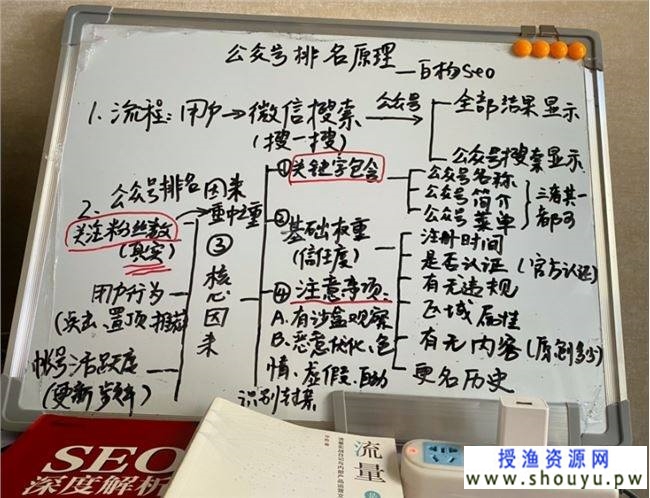 公众号排名原理—百构seo
1. 流程: 用户→微信搜索 公众号
(搜一搜)
全部结果显示
公众号搜索显示
2. 公众号排名因素
重中之重
① 关键字包含
公众号名称
公众号简介
公众号菜单
三者其一
都可
② 基础权重
(信任度)
注册时间
是否认证(官方认证)
有无违规
区域属性
有无内容(原创多少)
更名历史
③ 核心因素
关注粉丝数
(真实)
用户行为
(点击、置顶、推荐
帐号活跃度
(更新频率)
④ 注意事项
A. 有沙盒观察
B. 恶意优化、色
情、虚假、自动
识别封禁
SEO
深度解析
流量
授渔资源网
www.shouyu.pw